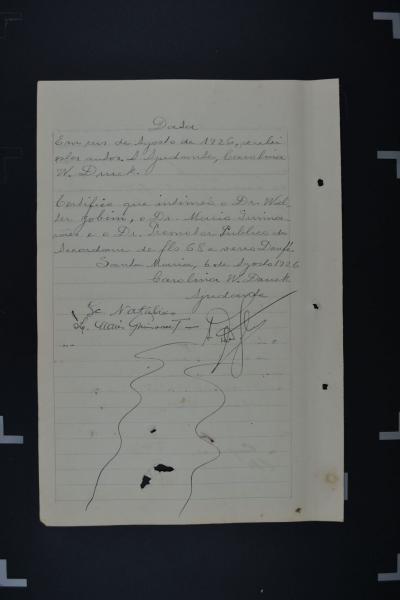 Data
Em seis de Agosto de 1926, recebi
estes autos. A Ajudante, Carolina
W. Druck.
Certifico que intimei o Dr. Wal-
ter Jobim, o Dr. Mario Guima-
rães e o Dr. Promotor Publico do
Accordam de fls 68 e verso. Doufé.
Santa Maria, 6 de Agosto 1926
Carolina W. Druck
Ajudante